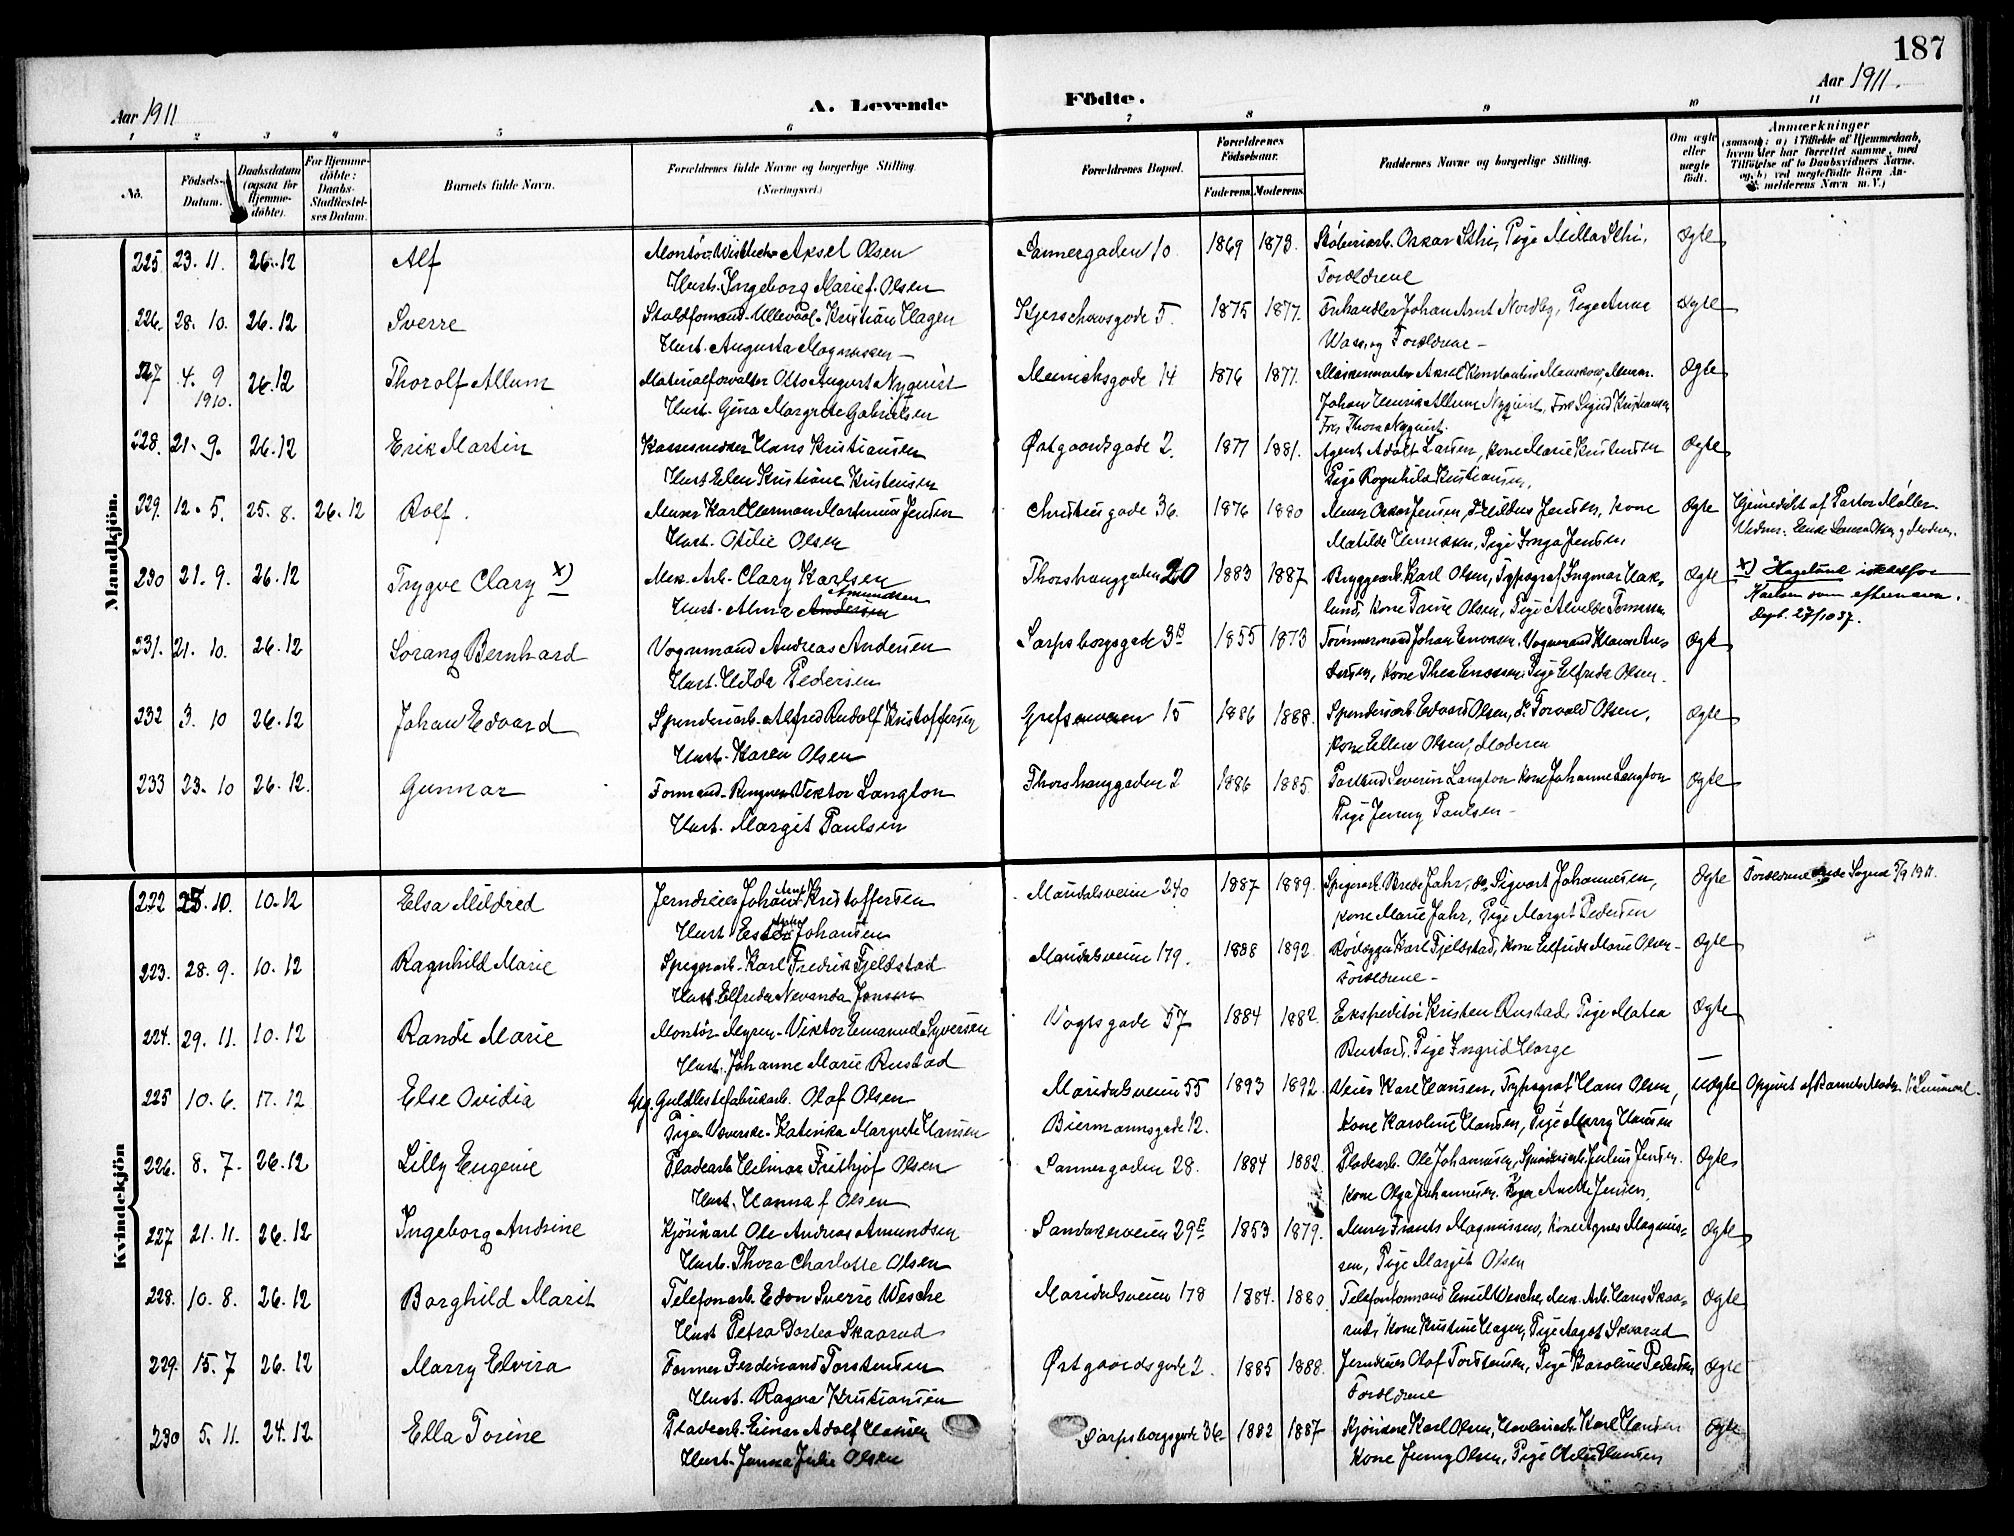 187
Aar 1911
A. Levende Födte.
Aar 1911.
1 2 3 4 5 6 7 8 9 10 11
No.
Födsels-Datum.
Daabsdatum (ogsaa for Hjemme-döbte).
For Hjemme-döbte: Daabs-Stadfæstel-ses Datum.
Barnets fulde Navn.
Forældrenes fulde Navne og borgerlige Stilling. (Næringsvei.)
Forældrenes Bopæl.
Forældrenes Födselsaar.
Faderens. Moderens.
Faddernes Navne og borgerlige Stilling.
Om ægte eller uægte födt.
Anmærkninger
(saasom: a) i Tilfælde af Hjemmedaab, hvem der har forrettet samme, med Tilföielse af to Daabsvidners Navne. og b) ved uægtefödte Börn An-melderens Navn m. V.)
Mandkjön.
225 23. 11. 26. 12 Alf Aksel Olsen Sannergaden 10. 1869 1873. Oskar Pige Milla Ægte
Hust. Ingeborg Marie f. Olsen Forældrene
226. 28. 10. 26. 12 Sverre Kristian Hagen 5. 1875 1877. Johan Arnt Nordby, Pige Anna Ægte
Hust. Augusta Magnussen og Forældrene
227 4. 9 1910. 26. 12 Thorolf Allum Materialforvalter Otto August Nyquist Meinichsgade 14 1876 1877. Aksel Ægte
Hust. Gina Margrete Gabrielsen Johan Henrik Allum Nyquist, Sigrid Kristiansen
Thora Nyquist.
228. 21. 9. 26. 12 Erik Martin Hans Kristiansen Østgaardsgade 2. 1877 1881. Agent Adolf Larsen, Kone Marie Kristensen Ægte
Hust. Elen Kristiane Kristensen Pige Ragnhild Kristiansen.
229. 12. 5. 25. 8. 26. 12 Rolf. Murer Karl Herman Martinius Jensen Christiesgade 36. 1876 1880 Murer Oskar Jensen, Jensen, Kone Ægte Hjemmedøbt af Pastor Møller.
Hust. Otilie Olsen Matilde Henriksen, Pige Inga Jensen, Moderen.
230 21. 9. 26. 12 Trygve Clary x) Mek. Arb. Clary Karlsen Thorshauggaden 20 1883 1887 Bryggearb. Karl Olsen, Typograf Ingmar Hak- Ægte x) Hagelund istedetfor
Hust. Alma Andersen Amundsen lund, Kone Trine Olsen, Pige Karlsen som efternavn.
27/10 37.
231. 21. 10. 26. 12 Sørang Bernhard Vognmand Andreas Andersen Sarpsborgsgade 3B 1855 1873 Tømmermand Johan Vognmand Ægte
Hust. Hilda Pedersen dersen, Kone Thea Pige Elfrida Olsen.
232 3. 10 26. 12 Johan Edvard Spenderiarb. Alfred Rudolf Kristoffersen Grefsenveien 15 1886 1888. Spenderiarb. Edvard Olsen, do. Torvald Olsen, Ægte
Hust. Karen Olsen Kone Ellen Olsen, Moderen
233 23. 10 26. 12. Gunnar Formand Viktor Langton Thorshauggaden 2 1886 1885 Severin Langton Kone Johanne Langton Ægte
Hust. Margit Paulsen Pige Jenny Paulsen
Kvindekjön
222 25. 10. 10. 12 Elsa Mildred Jerndreier Johan Arnt Kristoffersen Maridalsveien 240 1887 1889. Spigerarb. Brede Jahr, do. Sigvart Johannesen, Ægte Forældrene 5/9 1911.
Hust. Ester Johansen Kone Marie Jahr, Pige Margit Pedersen
223. 28. 9. 10. 12 Ragnhild Marie Spigerarb. Karl Fredrik Fjeldstad Maridalsveien 179. 1888 1892. Rørlægger Karl Fjeldstad, Kone Elfrida Marie Olsen Ægte
Hust. Elfrida Nevanda Jonsen Forældrene
224. 29. 11. 10. 12 Randi Marie Montør Myren Viktor Emanuel Syversen Vogtsgade 57 1884 1882. Ekspeditør Kristen Rustad, Pige Matea Ægte
Hust. Johanne Marie Rustad Rustad, Pige Ingrid
225 10. 6. 17. 12 Else Ovidia Ug. Guldlistefabrikarb. Olaf Olsen Maridalsveien 55 1893 1892. Karl Hansen, Typograf Hans Olsen, Uægte Opgivet af Barnets Moder
Pige Væverske Katinka Margrete Hansen Biermannsgade 12. Kone Karoline Hansen, Pige Marry Hansen
226. 8. 7. 26. 12 Lilly Eugenie Pladearb. Hilmar Frithjof Olsen Sannergaden 28. 1884 1882. Pladearb. Ole Johannesen, Julius Jensen. Ægte
Hust. Hanna f. Olsen Kone Olga Johannesen, Pige Anette Jensen.
227 21. 11. 26. 12 Ingeborg Andrine Kjørekarl Ole Andreas Amundsen Sandakerveien 29E 1853 1879. Murer Frants Magnussen, Kone Agnes Magnus- Ægte
Hust. Thora Charlotte Olsen sen, Pige Margit Olsen
228. 10. 8. 26. 12 Borghild Marit Telefonarb. Edon Sverre Wesche Maridalsveien 178 1884. 1880. Telefonformand Emil Wesche, Mek. Arb. Hans Skaa- Ægte
Hust. Petra Dortea Skaarud rud, Kone Kristine Hagen, Pige Aagot Skaarud
229. 15. 7 26. 12 Marry Elvira Former Ferdinand Torstensen Østgaardsgade 2. 1885 1888. Jerndreier Olaf Torstensen, Pige Karoline Pedersen Ægte
Hust. Ragna Kristiansen Forældrene
230 5. 11. 24. 12. Ella Torine Pladearb. Einar Adolf Hansen Sarpsborgsgade 36 1882 1887 Karl Olsen, Karl Hansen Ægte
Hust. Janna Julie Olsen Kone Jenny Olsen, Pige Hansen